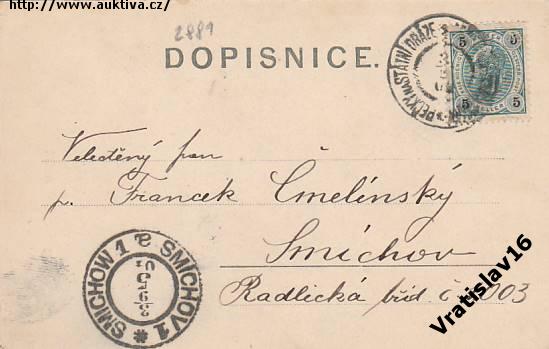 http://www.auktiva.cz/
2889
DOPISNICE.
PEČKY NA STÁTNÍ DRÁZE
5 5
5 5
Velectěný pan
p. Francek Čmelínský
Smíchov
Radlická tříd. č. 003
SMICHOW 1 SMÍCHOV 1
Vratislav16